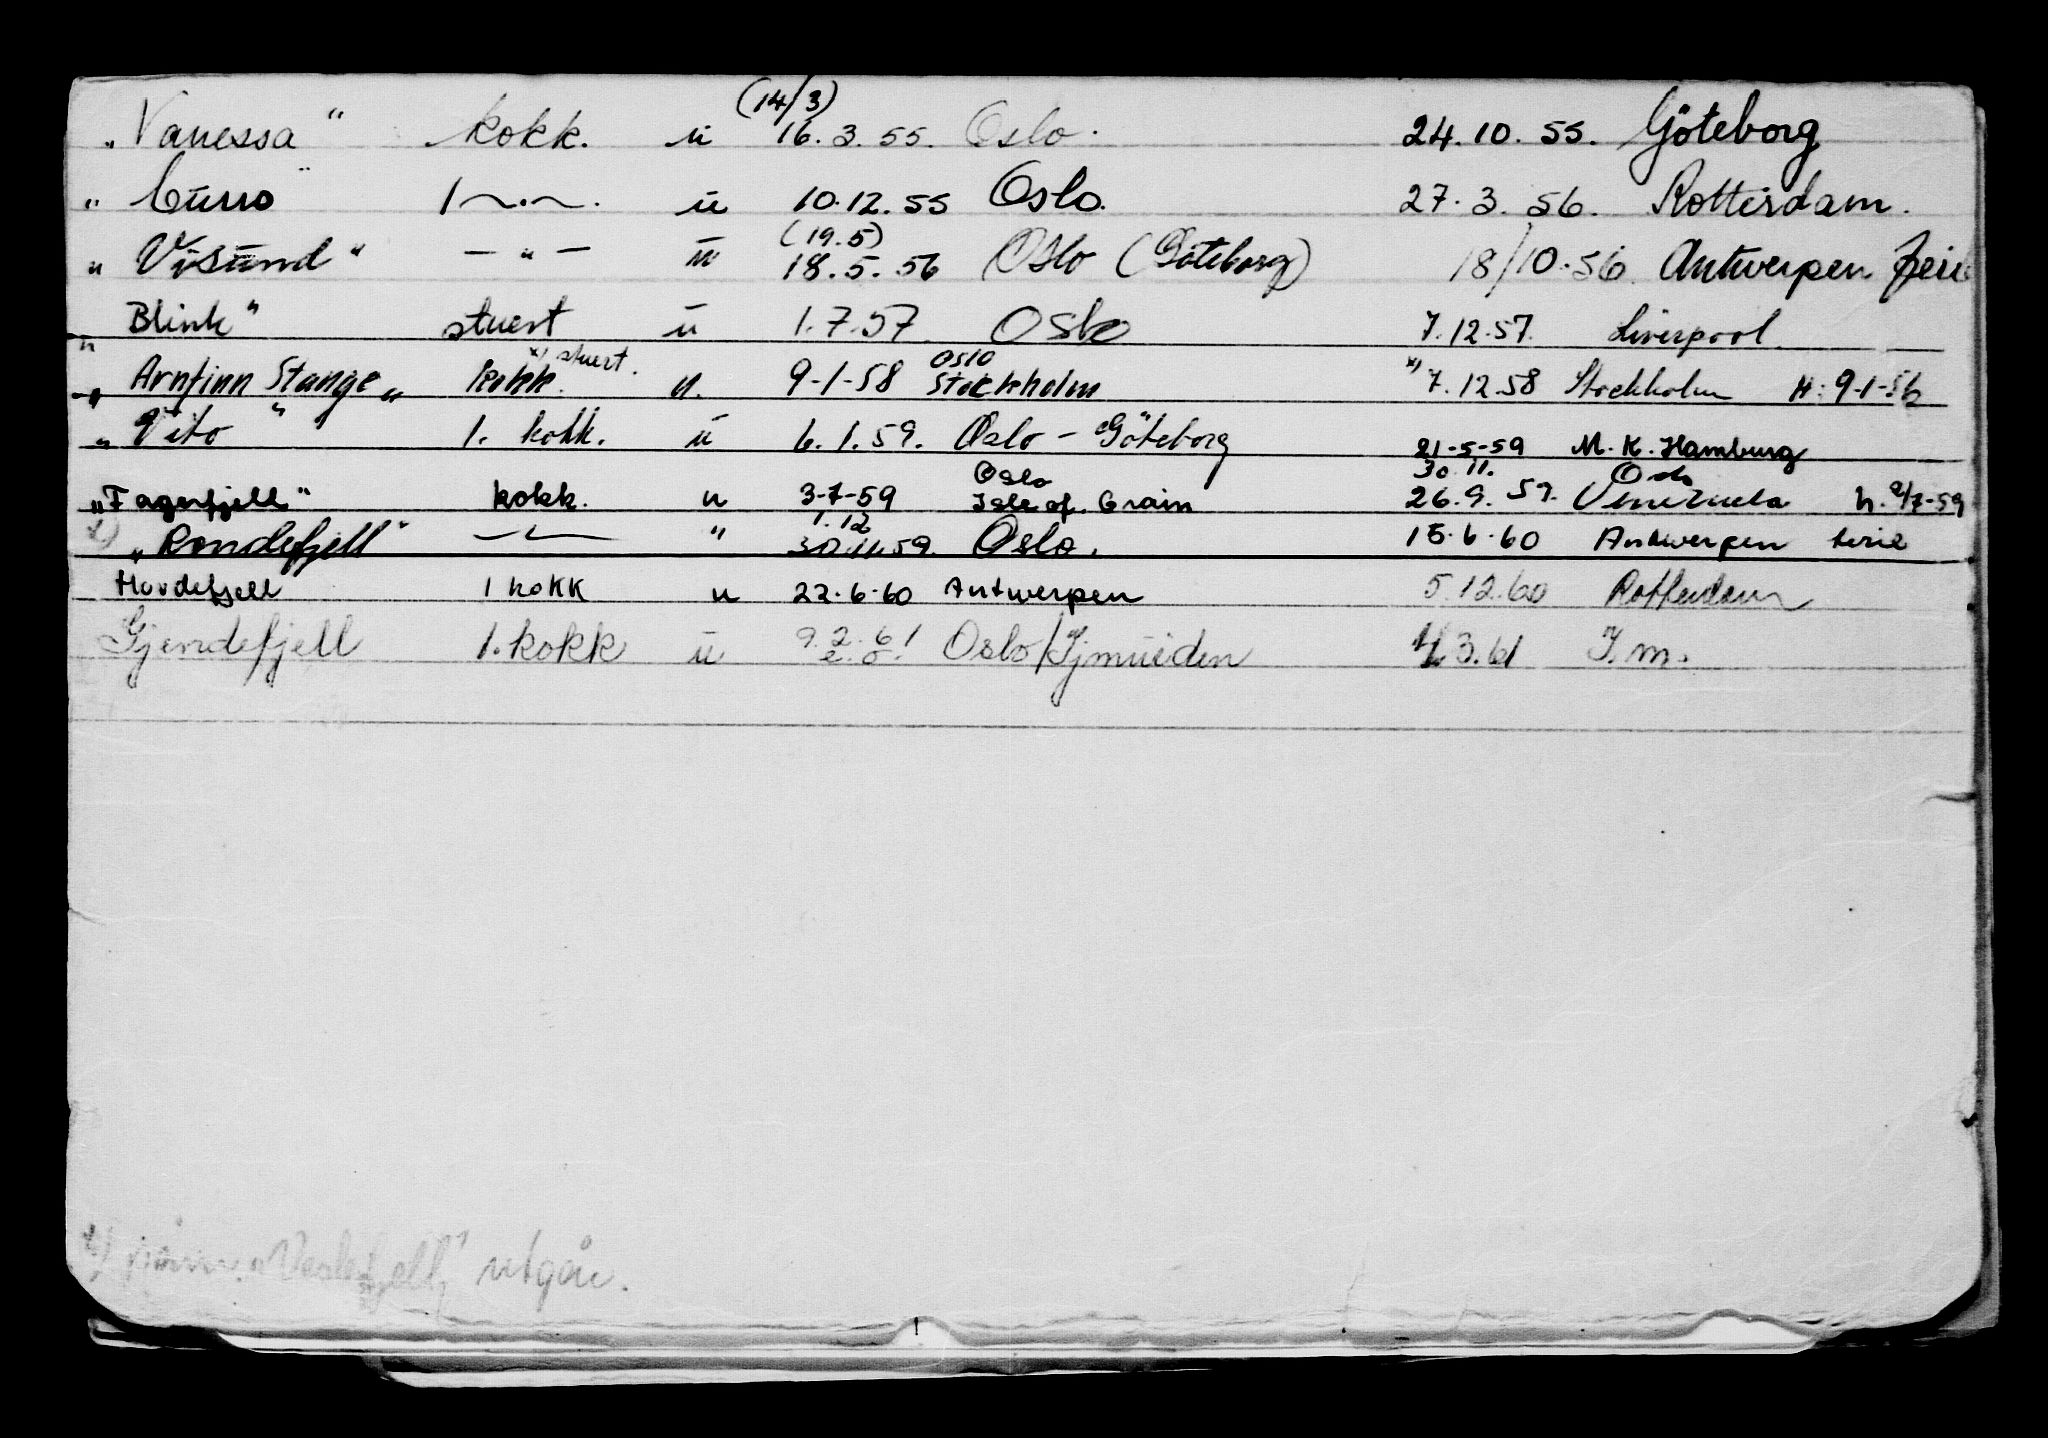 (14/3)
„Vanessa" kokk. u 16.3.55. Oslo. 24.10.55. Göteborg
„ " 1 ~.~. u 10.12.55 Oslo. 27.3.56. Rotterdam.
„Visund" — " — u (19.5) 18.5.56 Oslo (Göteborg) 18/10.56 Antwerpen ferie
„Blink" stuert u 1.7.57 Oslo 7.12.57. Liverpool.
x) stuert. Oslo
„Arnfinn Stange" kokk. u. 9-1-58 Stockholm x) 7.12.58 Stockholm H: 9-1-
„Vito" 1. kokk. u 6.1.59. Oslo - Göteborg 21-5-59 M.K. Hamburg
Oslo 30.11. Oslo
„Fagerfjell" kokk. u 3-7-59 Isle of Grain 26.9.59. Venezuela h. 2/7-59
1.12
x) „Rondefjell" —~— " 30.11.59. Oslo. 15.6.60 Antwerpen ferie
Hovdefjell 1 kokk u 22-6-60 Antwerpen 5.12.60 Rotterdam
Gjendefjell 1. kokk u 9.2.61 Oslo/Ijmuiden 3.61 I.m.
x) „Veslefjell" utgår.